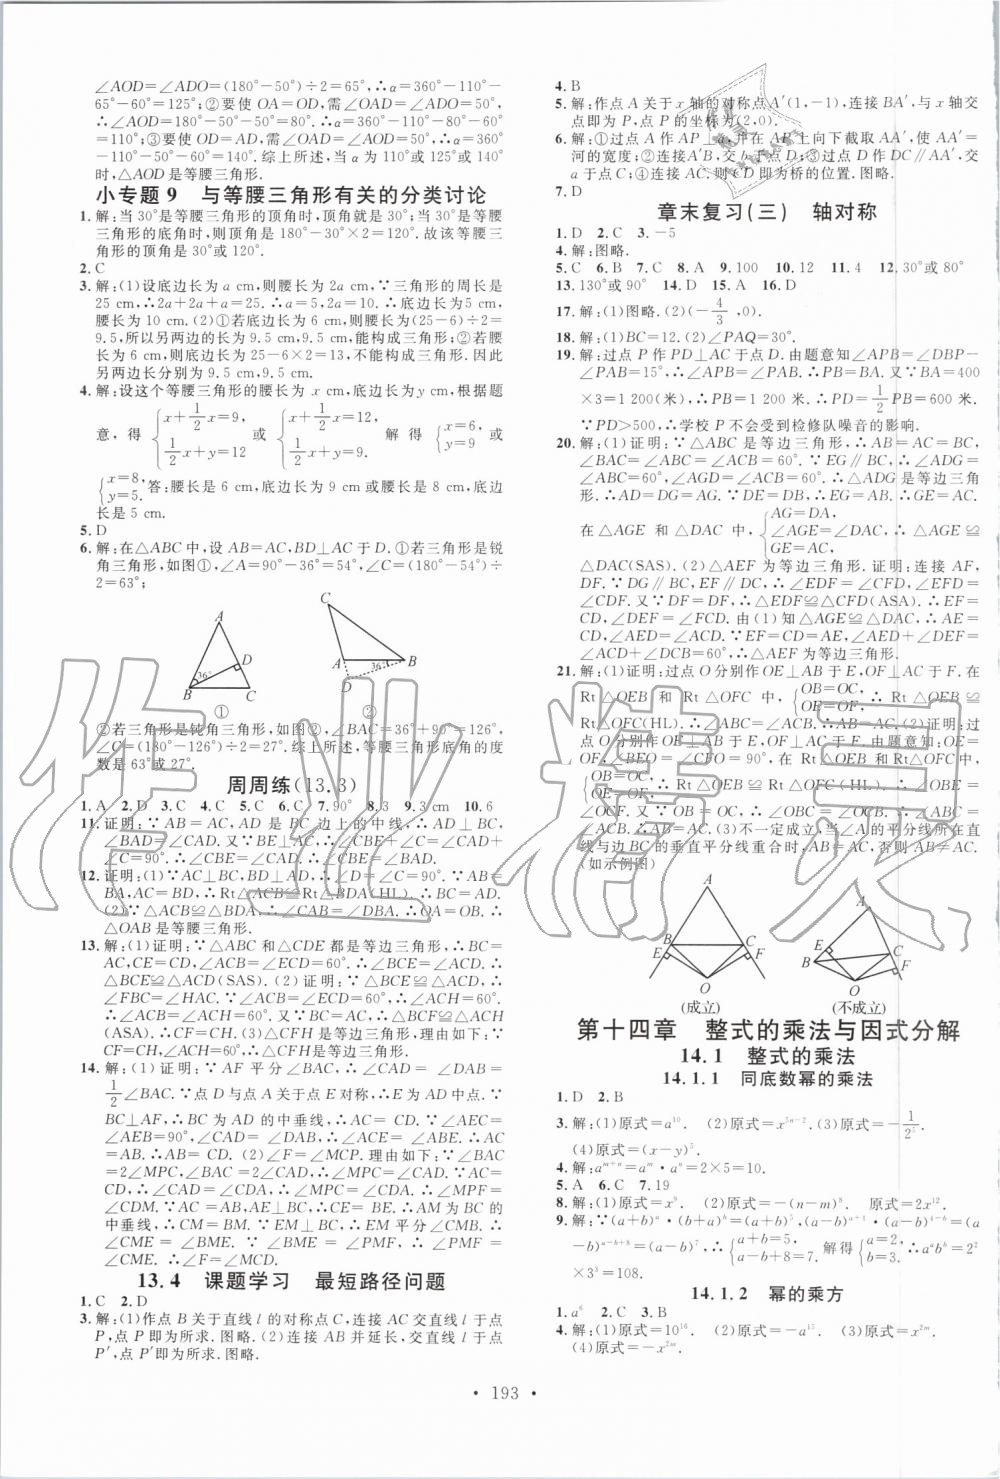 ∠AOD=∠ADO=(180°-50°)÷2=65°,∴α=360°-110°-
65°-60°=125°;②要使 OA=OD,需∠OAD=∠ADO=50°,
∴∠AOD=180°-50°-50°=80°.∴α=360°-110°-80°-60°
=110°;③要使 OD=AD,需∠OAD=∠AOD=50°,∴α=360°
-110°-50°-60°=140°.综上所述,当α=125°或 110°或 140°
时,△AOD是等腰三角形.
小专题 9 与等腰三角形有关的分类讨论
1.解:当 30°是等腰三角形的顶角时,顶角就是 30°;当 30°是等腰
三角形的底角时,则顶角是 180°-30°×2=120°.故该等腰三
角形的顶角是 30°或 120°.
2.C
3.解:(1)设底边长为 a cm,则腰长为 2a cm,∵三角形的周长是
25 cm,∴2a+2a+a=25.∴a=5.∴2a=10.∴底边长为5 cm,
腰长为 10 cm.(2)①若底边长为 6 cm,则腰长为(25-6)÷2=
9.5,所以另两边的长为 9.5 cm,9.5 cm,能构成三角形;②若腰
长为 6 cm,则底边长为 25-6×2=13,不能构成三角形.因此
另两边长分别为 9.5 cm,9.5 cm.
4.解:设这个等腰三角形的腰长为 x cm,底边长为 y cm,根据题
意,得 {x+1/2x=9, 1/2x+y=12 或 {x+1/2x=12, 1/2x+y=9. 解得 {x=6, y=9 或
{x=8, y=5. 答:腰长是 6 cm,底边长为 9 cm或腰长是 8 cm,底边
长是 5 cm.
5.D
6.解:在△ABC中,设AB=AC,BD⊥AC于D.①若三角形是锐
角三角形,如图①,∠A=90°-36°=54°,∠C=(180°-54°)÷
2=63°;
A
D
36°
B
C
①
C
A
36°
B
D
②
②若三角形是钝角三角形,如图②,∠BAC=36°+90°=126°,
∠C=(180°-126°)÷2=27°.综上所述,等腰三角形底角的度
数是 63°或 27°.
周周练(13.3)
1.A 2.D 3.C 4.C 5.C 6.C 7.90° 8.3 9.3 cm 10.6
11.证明:∵AB=AC,AD是BC边上的中线,∴AD⊥BC,
∠BAD=∠CAD.又∵BE⊥AC,∴∠CBE+∠C=∠CAD+
∠C=90°.∴∠CBE=∠CAD.∴∠CBE=∠BAD.
12.证明:(1)∵AC⊥BC,BD⊥AD,∴∠D=∠C=90°.∵AB=
BA,AC=BD,∴Rt△ACB≌Rt△BDA(HL).∴BC=AD.
(2)∵△ABC≌△BDA,∴∠CAB=∠DBA.∴OA=OB.∴
△OAB是等腰三角形.
13.解:(1)证明:∵△ABC和△CDE都是等边三角形,∴BC=
AC,CE=CD,∠ACB=∠ECD=60°.∴∠BCE=∠ACD.∴
△BCE≌△ACD(SAS).(2)证明:∵△BCE≌△ACD,∴
∠FBC=∠HAC.∵∠ACB=∠ECD=60°,∴∠ACH=60°.
∴∠BCF=∠ACH.又∵BC=AC,∴△BCF≌△ACH
(ASA).∴CF=CH.(3)△CFH是等边三角形,理由如下:∵
CF=CH,∠FCH=60°,∴△CFH是等边三角形.
14.解:(1)证明:∵AF平分∠CAB,∴∠CAD=∠DAB=
1/2∠CAB.∵点D与点A关于点E对称,∴E为AD中点.∵
BC⊥AF,∴BC为AD的中垂线,∴AC=CD.∵∠AEC=
∠AEB=90°,∠CAD=∠DAB,∴∠ACE=∠ABE.∴AC=
AB.∴AB=CD.(2)∠F=∠MCD.理由如下:∵∠BAC=
2∠MPC,∠BAC=2∠CAD,∴∠MPC=∠CAD.∵AC=
CD,∴∠CAD=∠CDA,∴∠MPC=∠CDA.∴∠MPF=
∠CDM.∵AC=AB,AE⊥BC,∴CE=BE.∴AM为BC的
中垂线,∴CM=BM.∵EM⊥BC,∴EM平分∠CMB.∴
∠CME=∠BME.∵∠BME=∠PMF,∴∠PMF=
∠CME.∴∠F=∠MCD.
13.4 课题学习 最短路径问题
1.C 2.D
3.解:(1)作点B关于直线l的对称点C,连接AC交直线l于点
P,点P即为所求.图略.(2)连接AB并延长,交直线l于点
P′,点P′即为所求.图略.
4.B
5.解:作点A关于x轴的对称点A′(1,-1),连接BA′,与x轴交
点即为P,点P的坐标为(2,0).
6.解:①过点A作AP⊥a,并在AP上向下截取AA′,使AA′=
河的宽度;②连接A′B,交b于点D;③过点D作DC∥AA′,交
a于点C;④连接AC.则CD即为桥的位置.图略.
7.D
章末复习(三) 轴对称
1.D 2.C 3.-5
4.解:图略.
5.C 6.B 7.C 8.A 9.100 10.12 11.4 12.30°或80°
13.130°或90° 14.D 15.A 16.D
17.解:(1)图略.(2)(-4/3,0).
18.解:(1)BC=12.(2)∠PAQ=30°.
19.解:过点P作PD⊥AC于点D.由题意知∠APB=∠DBP-
∠PAB=15°,∴∠APB=∠PAB.∴PB=BA.又∵BA=400
×3=1 200(米),∴PB=1 200米.∴PD=1/2PB=600米.
∵PD>500,∴学校P不会受到检修队噪音的影响.
20.解:(1)证明:∵△ABC是等边三角形,∴AB=AC=BC,
∠BAC=∠ABC=∠ACB=60°.∵EG∥BC,∴∠ADG=
∠ABC=60°,∠AGD=∠ACB=60°.∴△ADG是等边三角
形.∴AD=DG=AG.∵DE=DB,∴EG=AB.∴GE=AC.
在△AGE和△DAC中,{AG=DA, ∠AGE=∠DAC, GE=AC, ∴△AGE≌
△DAC(SAS).(2)△AEF为等边三角形.证明:连接AF,
DF.∵DG∥BC,EF∥DC,∴∠EDF=∠CFD,∠EFD=
∠CDF.又∵DF=FD,∴△EDF≌△CFD(ASA).∴EF=
CD,∠DEF=∠FCD.由(1)知△AGE≌△DAC,∴AE=
CD,∠AED=∠ACD.∴EF=AE,∠AED+∠DEF=
∠ACD+∠FCD=∠ACB=60°.∴△AEF为等边三角形.
21.解:(1)证明:过点O分别作OE⊥AB于E,OF⊥AC于F.在
Rt△OEB和Rt△OFC中,{OB=OC, OE=OF, ∴Rt△OEB≌
Rt△OFC(HL).∴∠ABC=∠ACB.∴AB=AC.(2)证明:过
点O分别作OE⊥AB于E,OF⊥AC于F.由题意知:OE=
OF,∠BEO=∠CFO=90°.在Rt△OEB和Rt△OFC中,
{OB=OC, OE=OF, ∴Rt△OEB≌Rt△OFC(HL).∴∠OBE=
∠OCF.又∵OB=OC,∴∠OBC=∠OCB.∴∠ABC=
∠ACB.∴AB=AC.(3)不一定成立,当∠A的平分线所在直
线与边BC的垂直平分线重合时,AB=AC,否则AB≠AC.
(如示例图)
A
B
C
E
F
O
(成立)
A
E
B
C
F
O
(不成立)
第十四章 整式的乘法与因式分解
14.1 整式的乘法
14.1.1 同底数幂的乘法
1.D 2.B
3.解:(1)原式=a¹⁰. (2)原式=x⁵ⁿ⁻². (3)原式=-1/2⁵.
(4)原式=(x-y)⁵.
4.解:aᵐ⁺ⁿ=aᵐ·aⁿ=2×5=10.
5.A 6.C 7.19
8.解:(1)原式=x⁹. (2)原式=-(n-m)⁸. 原式=2x¹².
9.解:∵(a+b)ᵃ·(b+a)ᵇ=(a+b)⁵,(a-b)ᵃ⁺⁴·(a-b)⁴⁻ᵇ
=(a-b)⁷,∴{a+b=5, a-b+8=7. 解得{a=2, b=3. ∴aᵃbᵇ=2²
×3³=108.
14.1.2 幂的乘方
1.a⁶ 2.C 3.B
4.解:(1)原式=10¹⁶. (2)原式=-a¹⁵. (3)原式=x²ᵐ.
(4)原式=-x²ᵐ.
· 193 ·
作业精灵